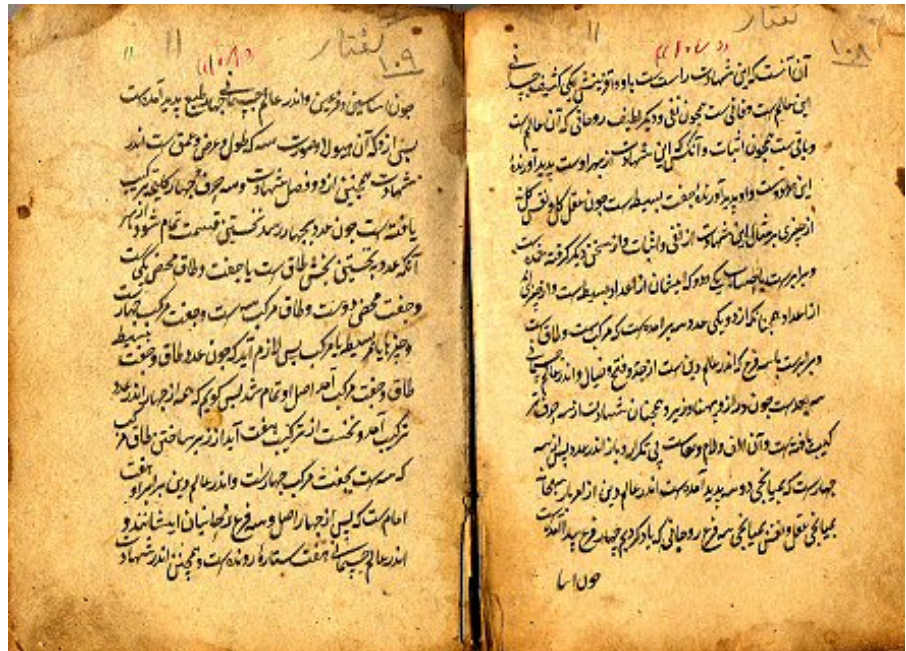 گفتار
۱۰۸
آن آنست که این شهادت راست ست باو و آفرینش یکی کثیف جسمانی
این عالم ست و فانی ست همچون نفی و دیگر لطیف روحانی که آن عالم ست
و باقی ست همچون اثبات و آنکس که این شهادت از بهر اوست پدید آورنده
این هر دوست و او پدید آورنده جفت بسیط ست چون عقل کل و نفس کل
از چیزی بر مثال این شهادت از نفی و اثبات و از سخنی دیگر گرفته شده ست
و برابرست با حساب یکی و دو که ایشان از اعداد بسیط ست و از چیزی
از اعداد چنانکه از دو و یکی عدد سه برآمده ست که مرکب ست و طاق ست
و برابرست با سه فرع که اندر عالم دین ست از جد و فتح و خیال و اندر عالم جسمانی
سه بعدست چون درازا و پهنا و زیر و همچنان شهادت از سه حرف تر
کیب یافته ست و آن الف و لام و هاست بی تکرار و باز اندر عدد پس از سه
چهارست که بمیانجی دو سه پدید آمده ست اندر عالم دین از امر بار سبحانه
بمیانجی عقل و نفس بمیانجی سه فرع روحانی که یاد کردیم چهار فرع پیدا آمده ست
چون اسا
گفتار
۱۰۹
چون اساسین و فرعین و اندر عالم جسمانی چهار طبع پدید آمده ست
پس از و که آن هیولا و صورت سه که طول و عرض و عمق ست اندر
شهادت همچنین از دو فصل شهادت و سه حرف چهار کلمه ترکیب
یافته ست چون عدد بچهار رسد نخستین قسمت تمام شود از بهر
آنکه عدد به نخستین بخش طاق ست یا جفت و طاق محض یکی ست
و جفت محض دوست و طاق مرکب سه است و جفت مرکب چهارست
و چیزها یا بسیط یا مرکب پس لازم آید که چون عدد طاق و جفت بسیط
طاق و جفت مرکب آمد اصل او تمام شد پس گوییم که همه از چهار اندر عدد
ترکیب آمد و نخست از ترکیب هفت آید از زبر ساختن طاق مرکب
که سه ست بجفت مرکب چهارست و اندر عالم دین برابر او هفت
امام ست که پس از چهار اصل و سه فرع روحانیان ایشانند و
اندر عالم جسمانی هفت ستاره رونده ست و همچنین اندر شهادت